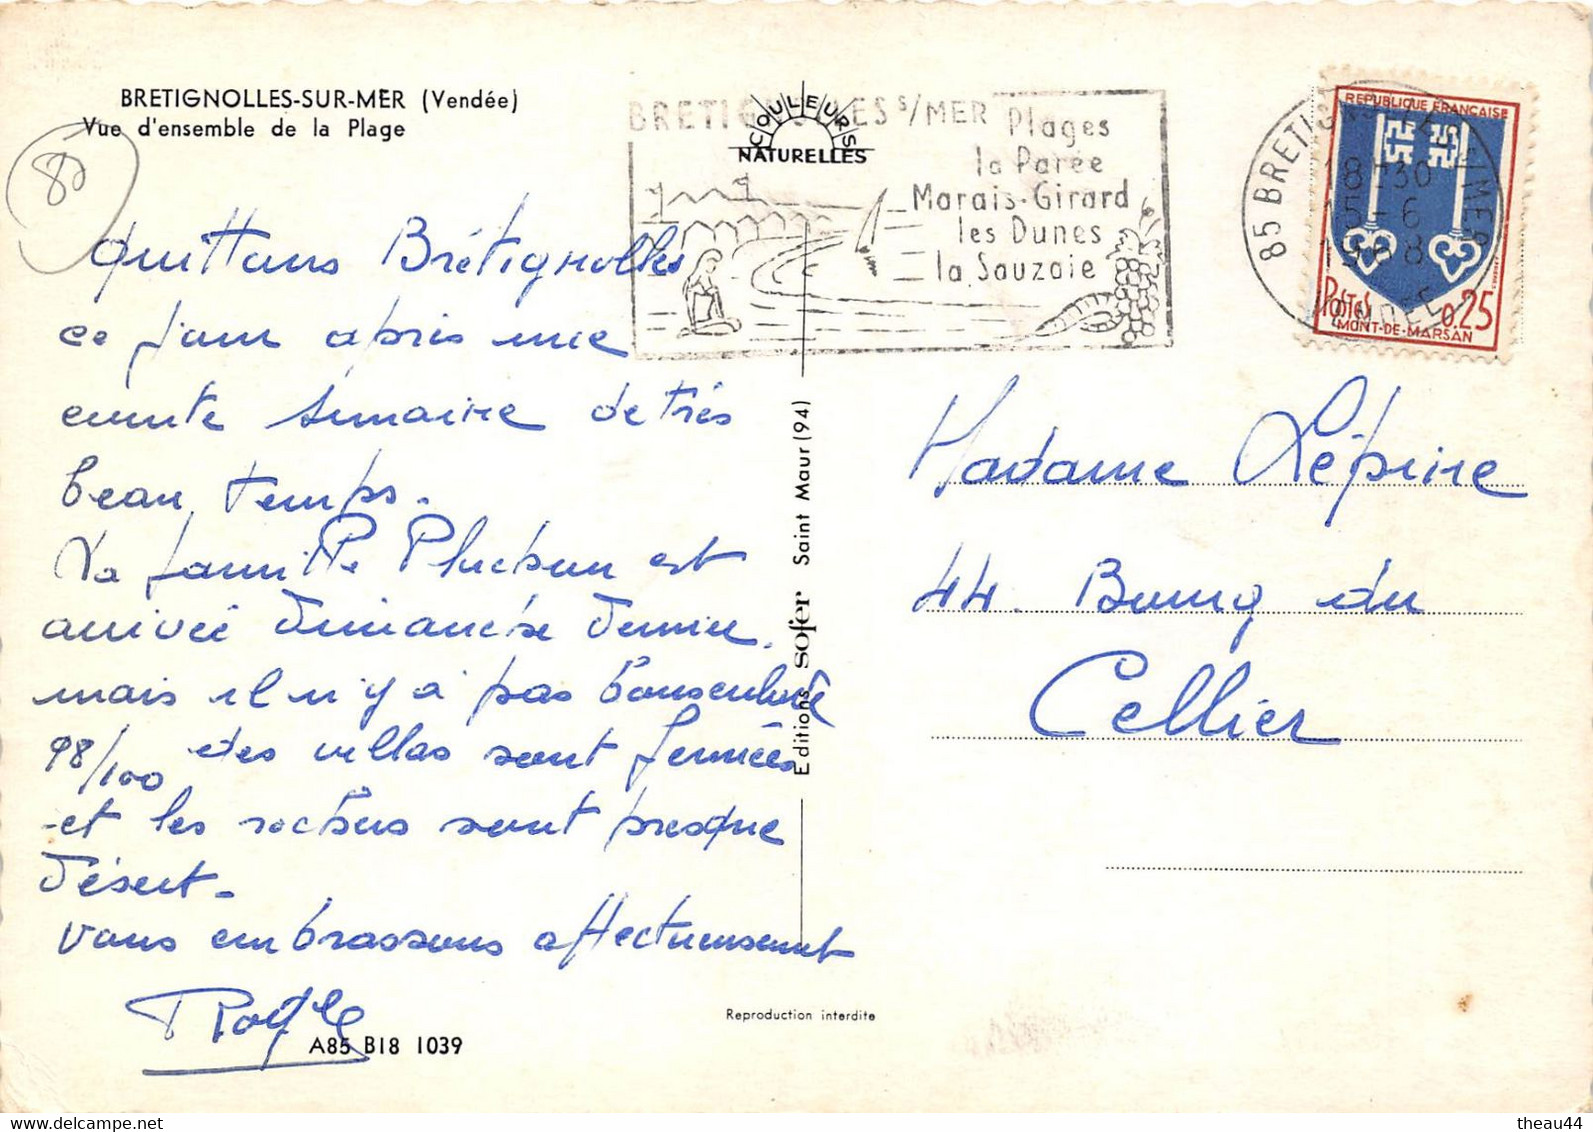 BRETIGNOLLES-SUR-MER (Vendée)
Vue d'ensemble de la Plage
85
quittons Brétignolles
ce jour après une
courte semaine de très
beau temps.
La famille est
arrivée Dimanche dernier.
mais il n'y a pas
98/100 des villas sont fermées
et les rochers sont presque
désert.
vous embrassons affectueusement
A85 B18 1039
COULEURS
NATURELLES
BRETIGNOLLES S/MER
Plages
la Parée
Marais-Girard
les Dunes
la Sauzaie
Editions sofer Saint Maur (94)
Reproduction interdite
85 BRETIGNOLLES S/MER
18-30
15-6
1968
VENDEE
REPUBLIQUE FRANCAISE
POSTES 0.25
MONT-DE-MARSAN
Madame Lépine
44. Bourg du
Cellier
delcampe.net
theau44